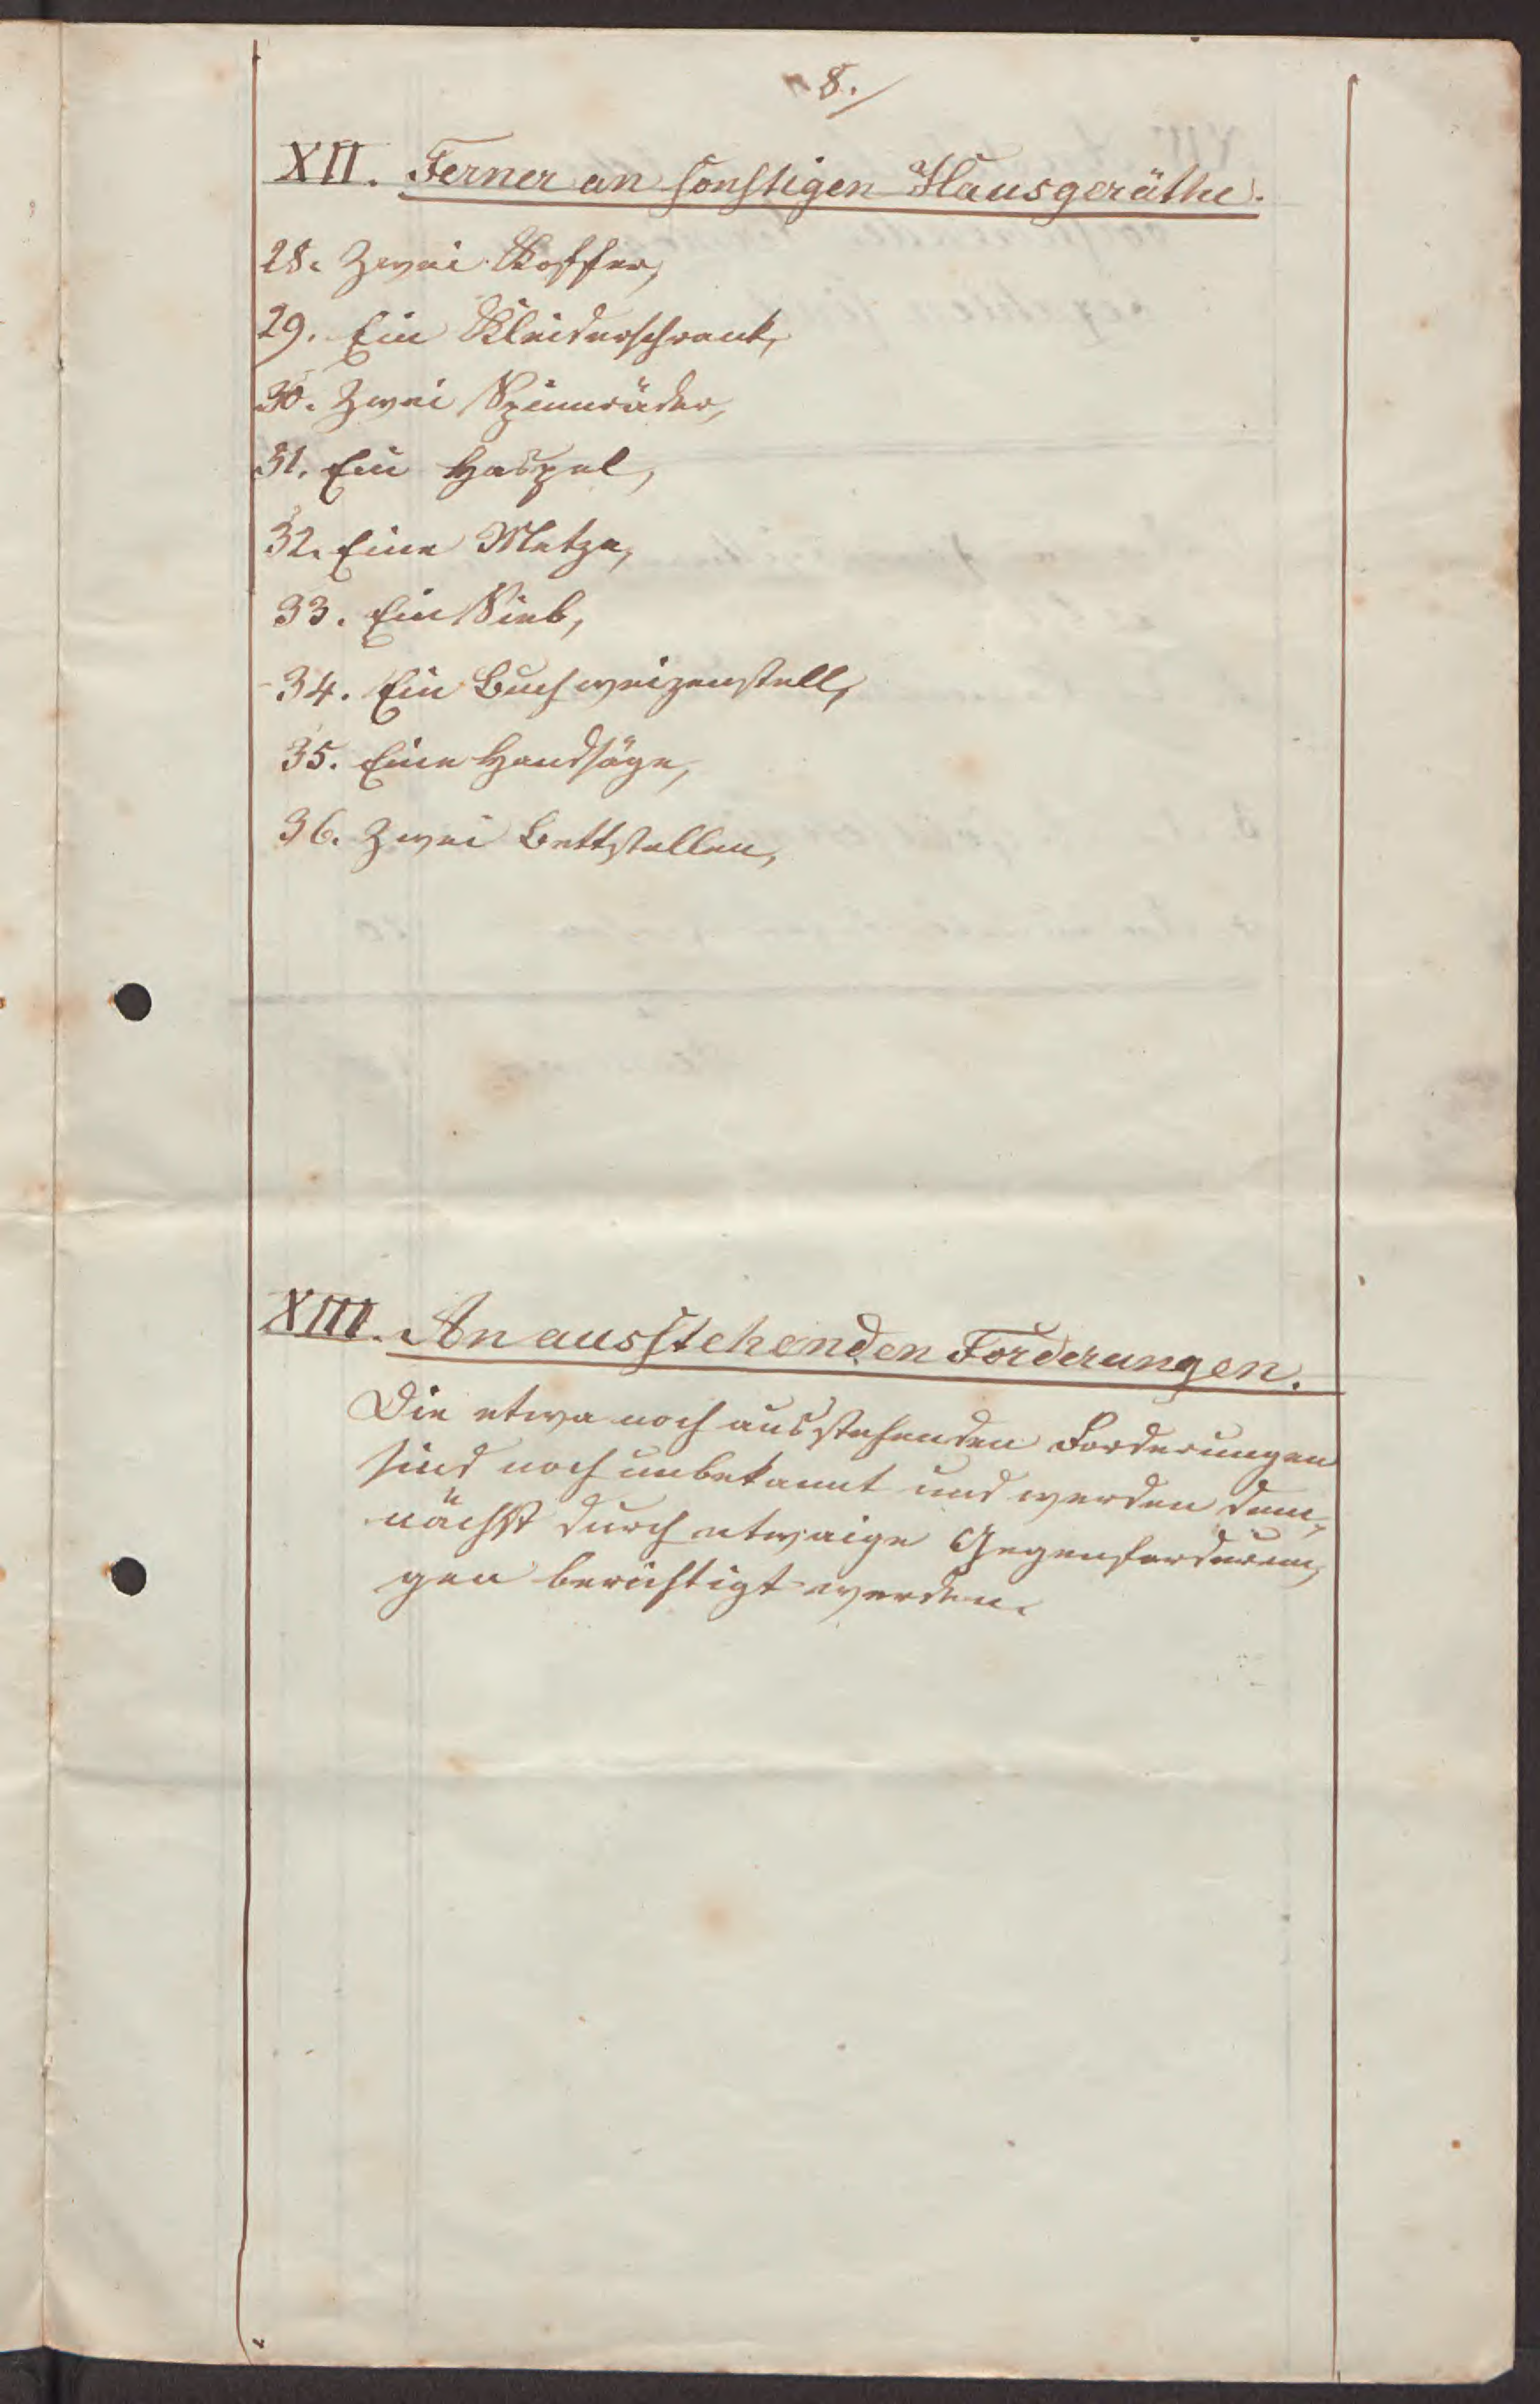 8.
XII. Ferner an sonstigen Hausgeräthe.
28. Zwei Koffer,
29. Ein Kleiderschrank,
30. Zwei Spinnräder,
31. Ein Haspel,
32. Eine Metze,
33. Ein Sieb,
34. Ein Buchweizenstell,
35. Eine Handsäge,
36. Zwei Bettstellen,
XIII. An ausstehenden Forderungen.
Die etwa noch ausstehenden Forderungen
sind noch unbekannt und werden dem-
nächst durch etwaige Gegenforderun-
gen berichtigt werden.